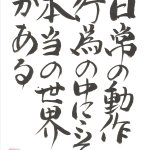 日常の動作
行為の中にこそ
本当の世界
がある